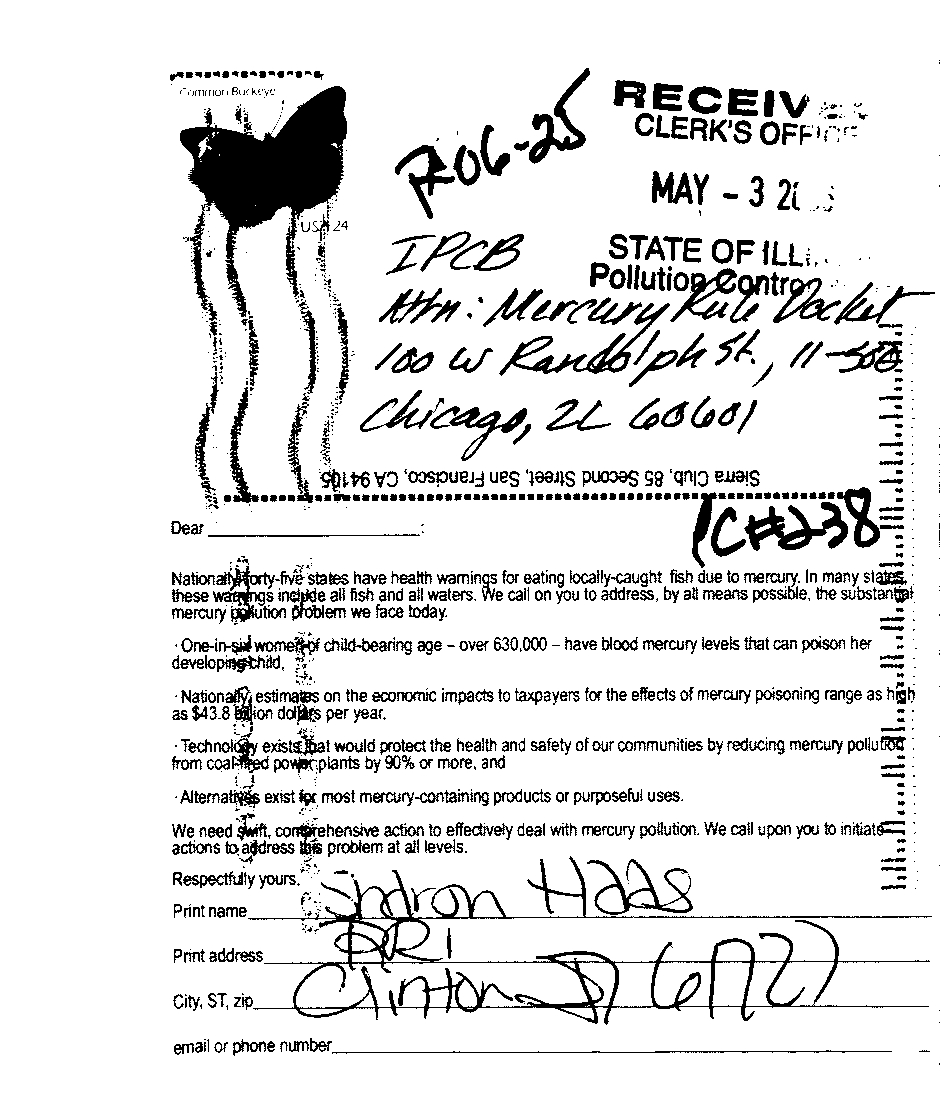 Common Buckeye
USA 24
R06-25
RECEIV
CLERK'S OFFICE
MAY - 3 2
STATE OF ILL
Pollution Contro
IPCB
Attn: Mercury Rule Docket
100 W Randolph St., 11-500
Chicago, IL 60601
Sierra Club, 85 Second Street, San Francisco, CA 94105
PC#238
Dear :
Nationally forty-five states have health warnings for eating locally-caught fish due to mercury. In many states,
these warnings include all fish and all waters. We call on you to address, by all means possible, the substantial
mercury pollution problem we face today.
· One-in-six women of child-bearing age – over 630,000 – have blood mercury levels that can poison her
developing child,
· Nationally, estimates on the economic impacts to taxpayers for the effects of mercury poisoning range as high
as $43.8 billion dollars per year,
· Technology exists that would protect the health and safety of our communities by reducing mercury pollution
from coal-fired power plants by 90% or more, and
· Alternatives exist for most mercury-containing products or purposeful uses.
We need swift, comprehensive action to effectively deal with mercury pollution. We call upon you to initiate
actions to address this problem at all levels.
Respectfully yours,
Print name Sharon Haas
Print address RR1
City, ST, zip Clinton Il 61727
email or phone number